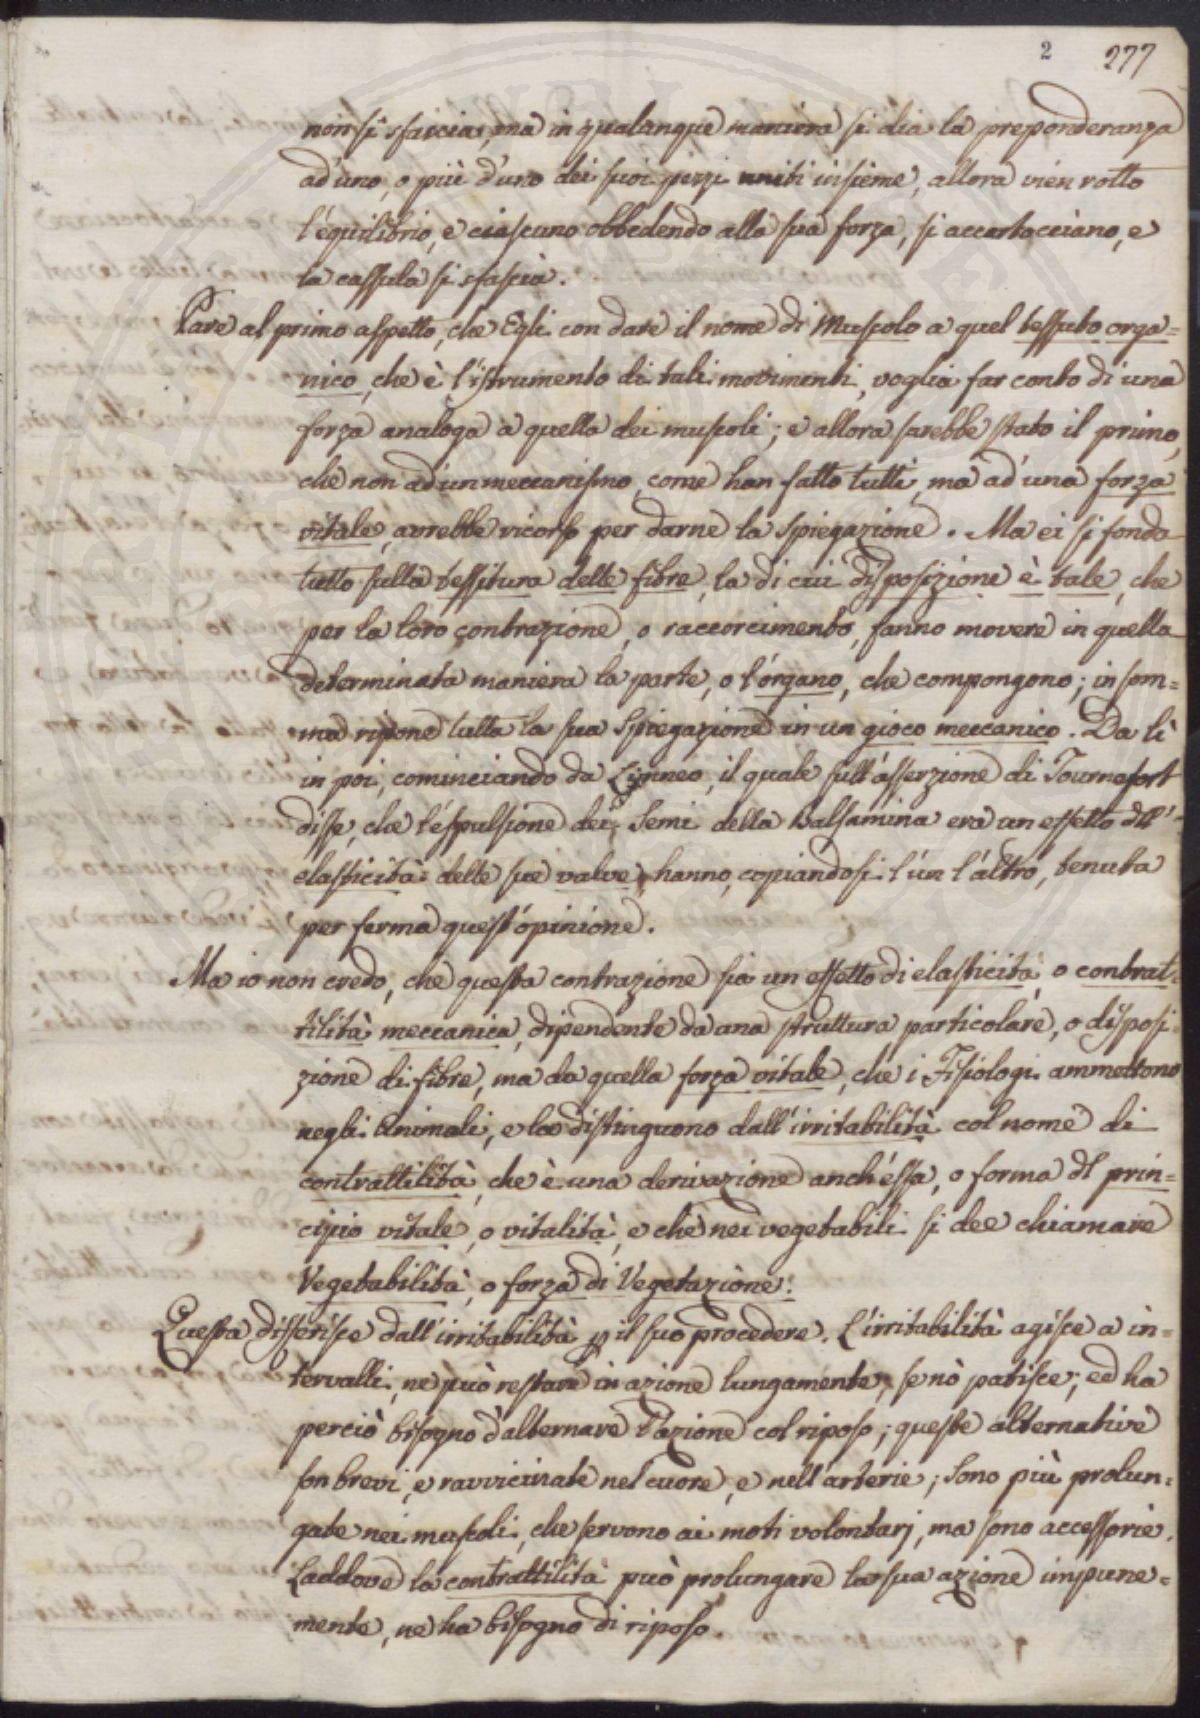 2 277
non si sfascia; ma in qualunque maniera si dia la preponderanza
ad uno, o più d'uno dei suoi pezzi uniti insieme, allora vien rotto
l'equilibrio, e ciascuno obbedendo alla sua forza, si accartocciano, e
la cassula si sfascia.
Pare al primo aspetto, che Egli con dare il nome di Muscolo a quel tessuto orga=
nico, che è l'istrumento di tali movimenti, voglia far conto di una
forza analoga a quella dei muscoli; e allora sarebbe stato il primo,
che non ad un meccanismo, come han fatto tutti, ma ad una forza
vitale, avrebbe ricorso per darne la spiegazione. Ma ei si fonda
tutto sulla tessitura delle fibre, la di cui disposizione è tale, che
per la loro contrazione, o raccorcimento, fanno movere in quella
determinata maniera la parte, o l'organo, che compongono; in som=
ma ripone tutta la sua spiegazione in un gioco meccanico. Da lì
in poi, cominciando da Linneo, il quale sull'asserzione di Tournefort
disse, che l'espulsione dei Semi della balsamina era un effetto dll'
elasticità delle sue valve, hanno, copiandosi l'un l'altro, tenuta
per ferma quest'opinione.
Ma io non credo, che questa contrazione sia un effetto di elasticità, o contrat=
tilità meccanica, dipendente da una struttura particolare, o disposi=
zione di fibre, ma da quella forza vitale, che i Fisiologi ammettono
negli Animali, e la distinguono dall'irritabilità col nome di
contrattilità, che è una derivazione anch'essa, o forma dl prin=
cipio vitale, o vitalità, e che nei vegetabili si dee chiamare
Vegetabilità, o forza di Vegetazione.
Questa differisce dall'irritabilità p il suo procedere. L'irritabilità agisce a in=
tervalli, ne può restare in azione lungamente, se nò patisce; ed ha
perciò bisogno d'alternare l'azione col riposo; queste alternative
son brevi, e ravvicinate nel cuore, e nell'arterie; sono più prolun=
gate nei muscoli, che servono ai moti volontarj, ma sono accessorie.
Laddove la contrattilità può prolungare la sua azione impune=
mente, ne ha bisogno di riposo.